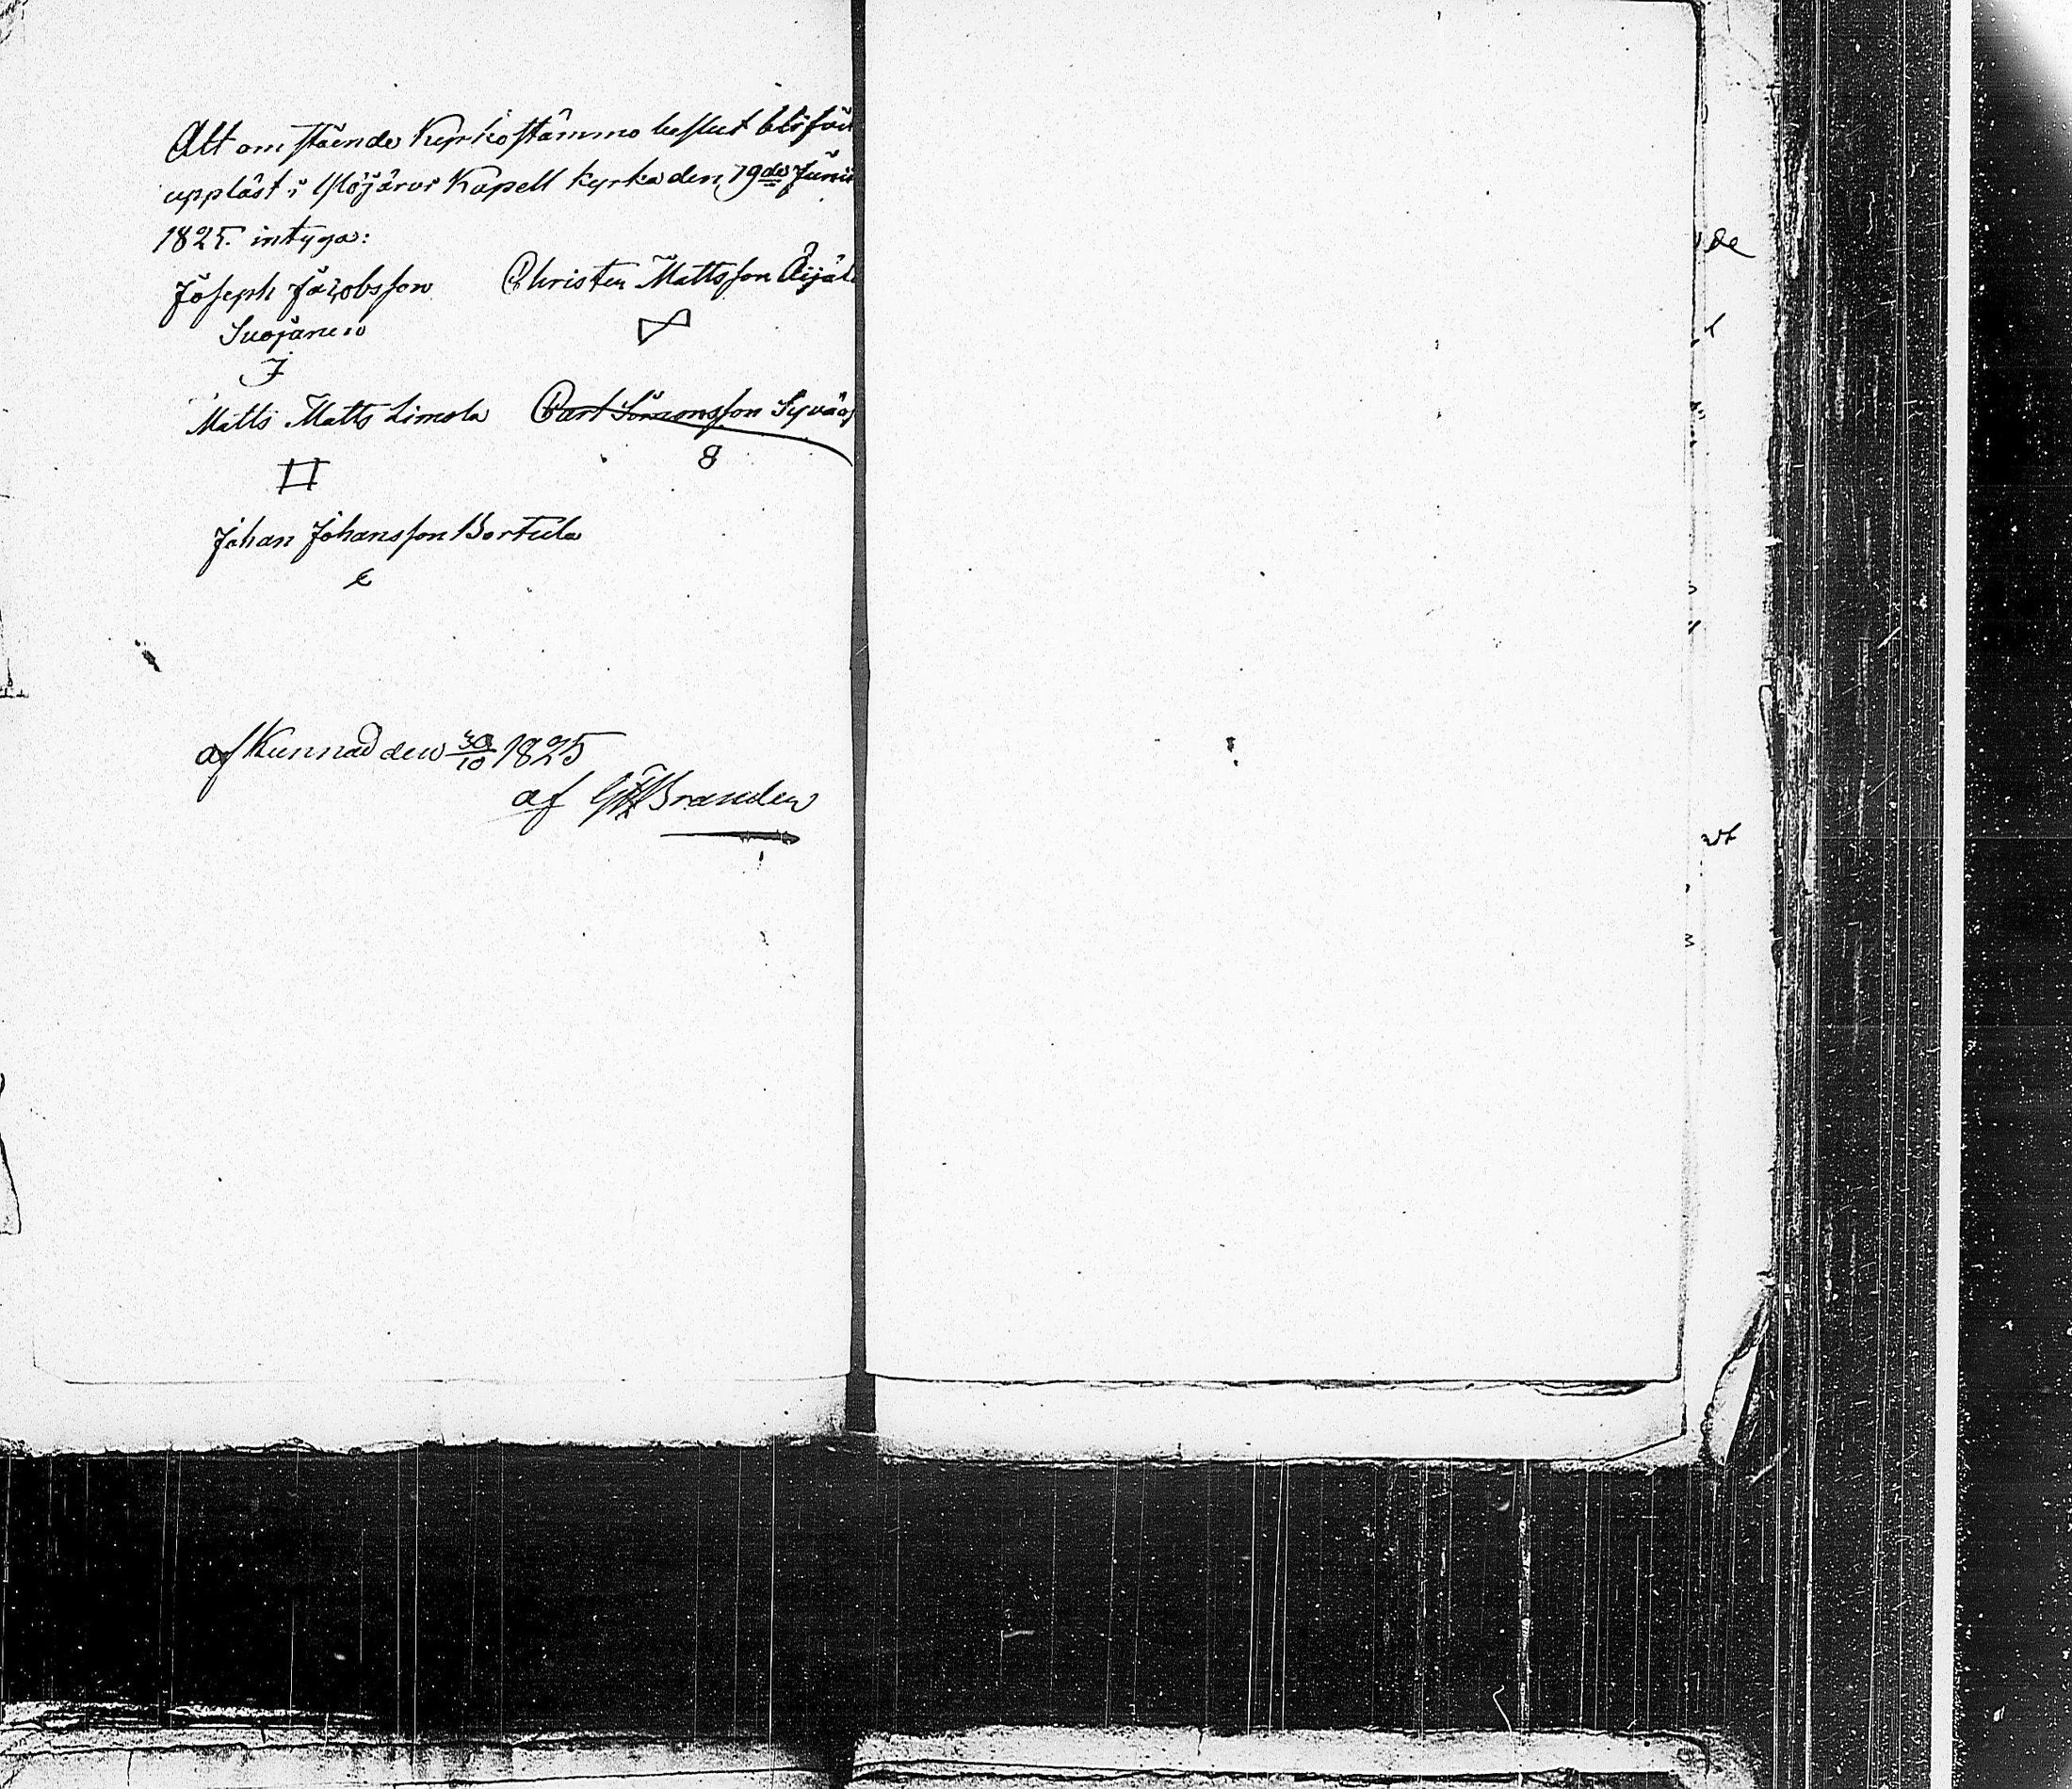 Att omstående Kyrkostämmo beslut blifvit
uppläst i Ylöjärvi Kapell kyrka den 19de Junii
1825. intyga:
Joseph Jacobsson Christer Mattsson Äijäl
Suojanen
J
Matts Matts Limola Carl Simonsson Syväoj
8
Johan Johansson Pertula
af Kunnad den 30/10 1825
af Branden
de